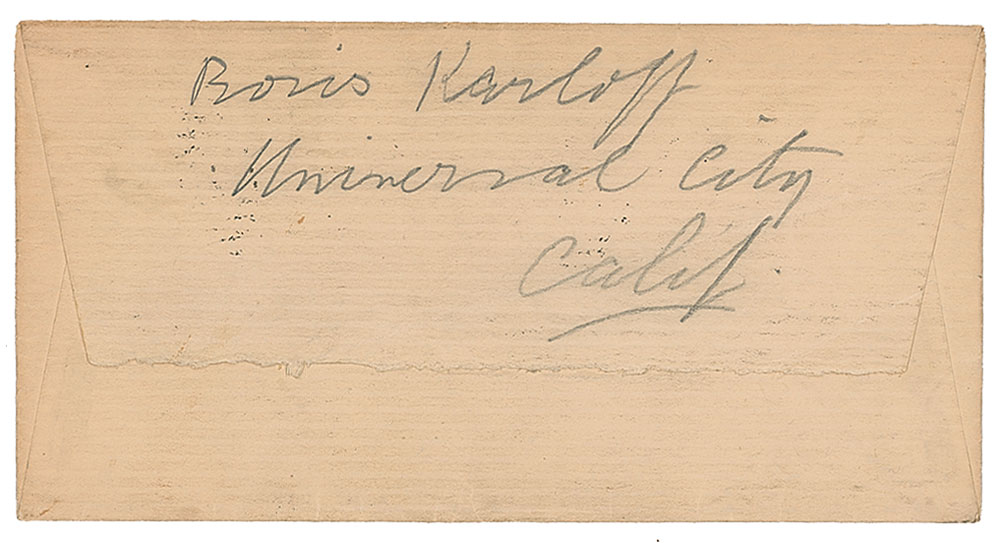 Boris Karloff
Universal City
Calif.